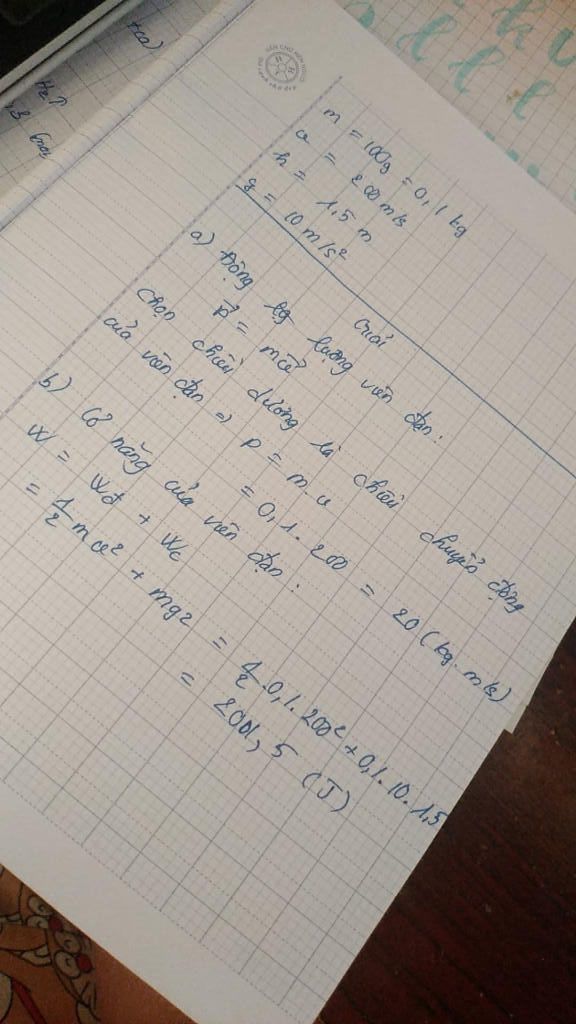 m = 100g = 0,1 kg
v = 200 m/s
h = 1,5 m
g = 10 m/s²
Giải
a) Động lg lượng viên đạn:
p⃗ = mv⃗
Chọn chiều dương là chiều chuyển động
của viên đạn => p = m.v
= 0,1 . 200 = 20 (kg.m/s)
b) Cơ năng của viên đạn:
W = Wđ + Wt
= 1/2 mv² + mgz = 1/2 .0,1. 200² + 0,1.10.1,5
= 2001,5 (J)